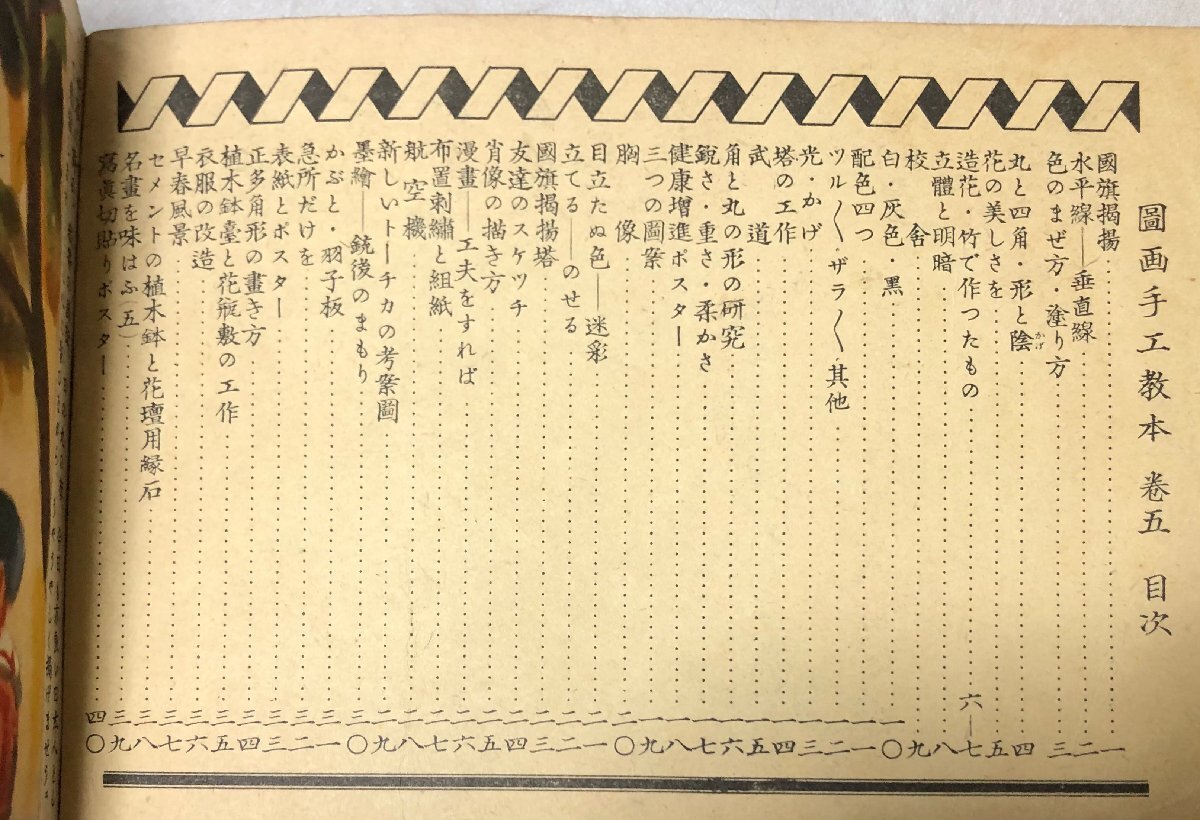 圖画手工教本 卷五 目次
國旗揭揚 一
水平線——垂直線 二
色のまぜ方・塗り方 三
丸と四角・形と陰 四
かげ
花の美しさを 五
造花・竹で作つたもの 六—七
立體と明暗 八
校舍 九
白・灰色・黑 一〇
配色四つ 一一
ツル〱・ザラ〱 其他 一二
光・かげ 一三
塔の工作 一四
武道 一五
角と丸の形の研究 一六
鋭さ・重さ・柔かさ 一七
健康增進ポスター 一八
三つの圖案 一九
胸像 二〇
目立たぬ色——迷彩 二一
立てる——のせる 二二
國旗揭揚塔 二三
友達のスケッチ 二四
肖像の描き方 二五
漫畫——工夫をすれば 二六
布置刺繡と組紙 二七
航空機 二八
新しいトーチカの考案圖 二九
墨繪——銃後のまもり 三〇
かぶと・羽子板 三一
急所だけを 三二
表紙とポスター 三三
正多角形の畫き方 三四
植木鉢臺と花瓶敷の工作 三五
衣服の改造 三六
早春風景 三七
セメントの植木鉢と花壇用緣石 三八
名畫を味はふ(五) 三九
寫眞切貼りポスター 四〇